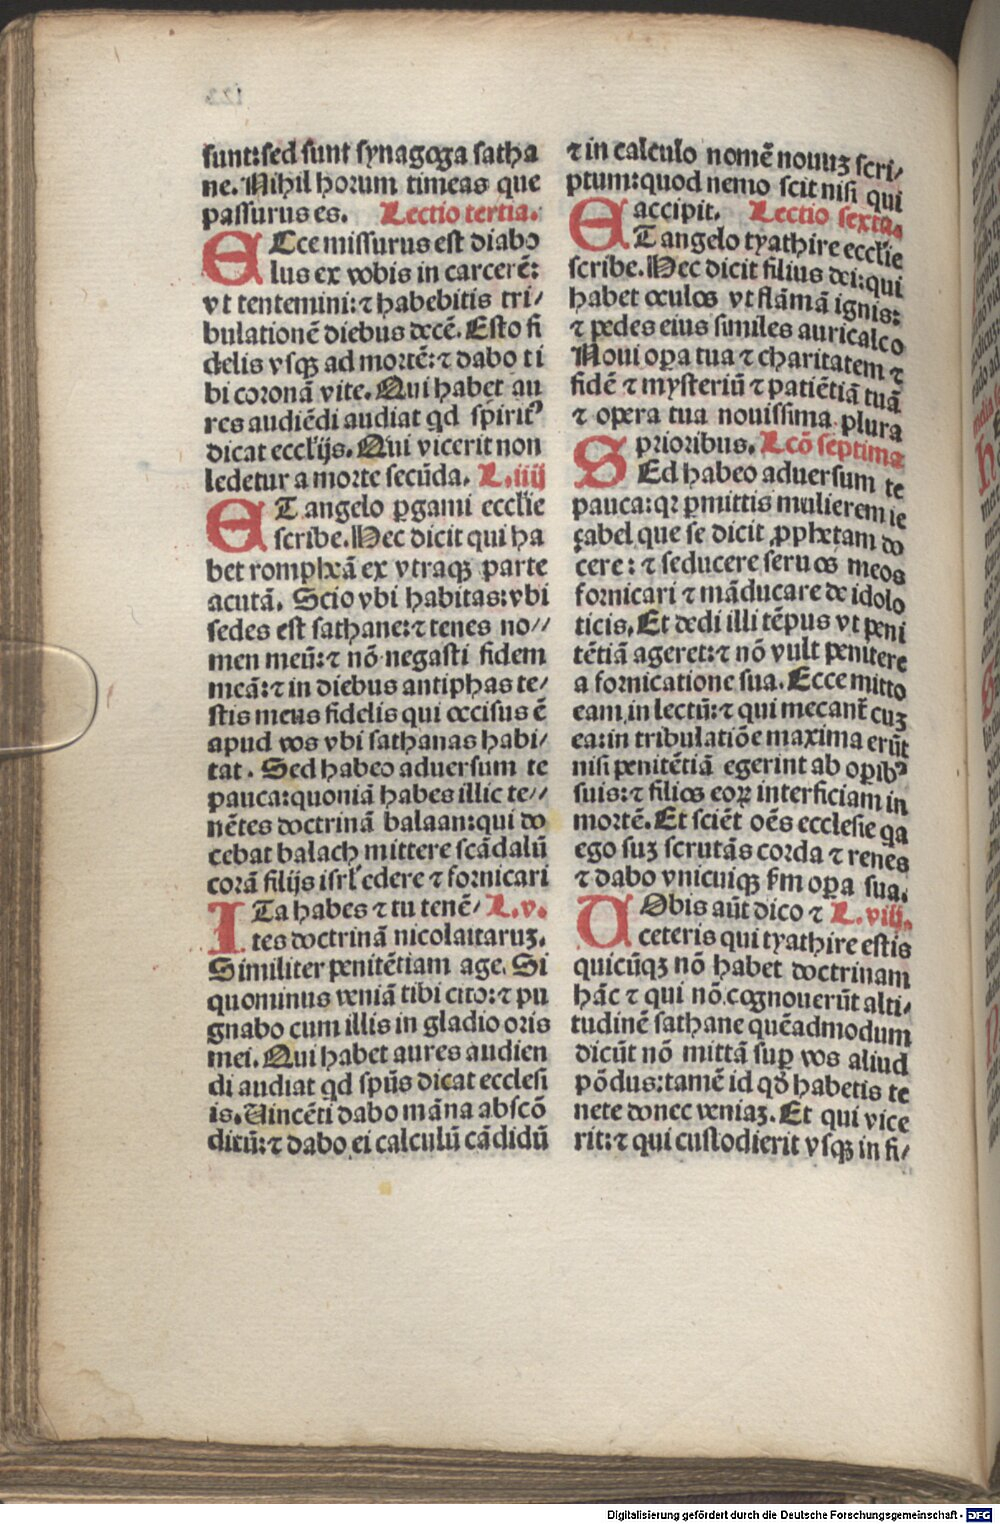 sunt:sed sunt synagoga satha
ne. Nihil horum timeas que
passurus es. Lectio tertia.
ECce missurus est diabo
lus ex vobis in carcerē:
vt tentemini:⁊ habebitis tri/
bulationē diebus decē. Esto fi
delis vsqꝫ ad mortē:⁊ dabo ti
bi coronā vite. Qui habet au
res audiēdi audiat qd spirit⁹
dicat eccl'ijs. Qui vicerit non
ledetur a morte secūda. L.iiij
ET angelo ꝑgami eccl'ie
scribe. Hec dicit qui ha
bet rompheā ex vtraqꝫ parte
acutā. Scio vbi habitas:vbi
sedes est sathane:⁊ tenes no//
men meū:⁊ nō negasti fidem
meā:⁊ in diebus antiphas te/
stis meus fidelis qui occisus ē
apud vos vbi sathanas habi/
tat. Sed habeo aduersum te
pauca:quoniā habes illic te//
nētes doctrinā balaan:qui do
cebat balach mittere scādalū
corā filijs isrl' edere ⁊ fornicari
ITa habes ⁊ tu tenē/ L.v.
tes doctrinā nicolaitaruꝫ.
Similiter penitētiam age. Si
quominus veniā tibi cito:⁊ pu
gnabo cum illis in gladio oris
mei. Qui habet aures audien
di audiat qd spūs dicat ecclesi
is. Uincēti dabo māna abscō
ditū:⁊ dabo ei calculū cādidū
⁊ in calculo nomē nouuꝫ scri/
ptum:quod nemo scit nisi qui
accipit. Lectio sexta.
ET angelo tyathire eccl'ie
scribe. Hec dicit filius dei:qui
habet oculos vt flāmā ignis:
⁊ pedes eius similes auricalco
Noui oꝑa tua ⁊ charitatem ⁊
fidē ⁊ mysteriū ⁊ patiētiā tuā
⁊ opera tua nouissima plura
prioribus. Lcō septima
SEd habeo aduersum te
pauca:qꝛ ꝑmittis mulierem ie
çabel que se dicit ꝓphetam do
cere: ⁊ seducere seruos meos
fornicari ⁊ māducare de idolo
ticis. Et dedi illi tēpus vt peni
tētiā ageret:⁊ nō vult penitere
a fornicatione sua. Ecce mitto
eam in lectū:⁊ qui mecant̄ cuꝫ
ea:in tribulatiōe maxima erūt
nisi penitētiā egerint ab oꝑib⁹
suis:⁊ filios eoꝝ interficiam in
mortē. Et sciēt oēs ecclesie qa
ego suꝫ scrutās corda ⁊ renes
⁊ dabo vnicuiqꝫ fm oꝑa sua.
UObis aūt dico ⁊ L.viij.
ceteris qui tyathire estis
quicūqꝫ nō habet doctrinam
hāc ⁊ qui nō cognouerūt alti/
tudinē sathane quēadmodum
dicūt nō mittā suꝑ vos aliud
pōdus:tamē id qd̄ habetis te
nete donec veniaꝫ. Et qui vice
rit:⁊ qui custodierit vsqꝫ in fi/
Digitalisierung gefördert durch die Deutsche Forschungsgemeinschaft - DFG